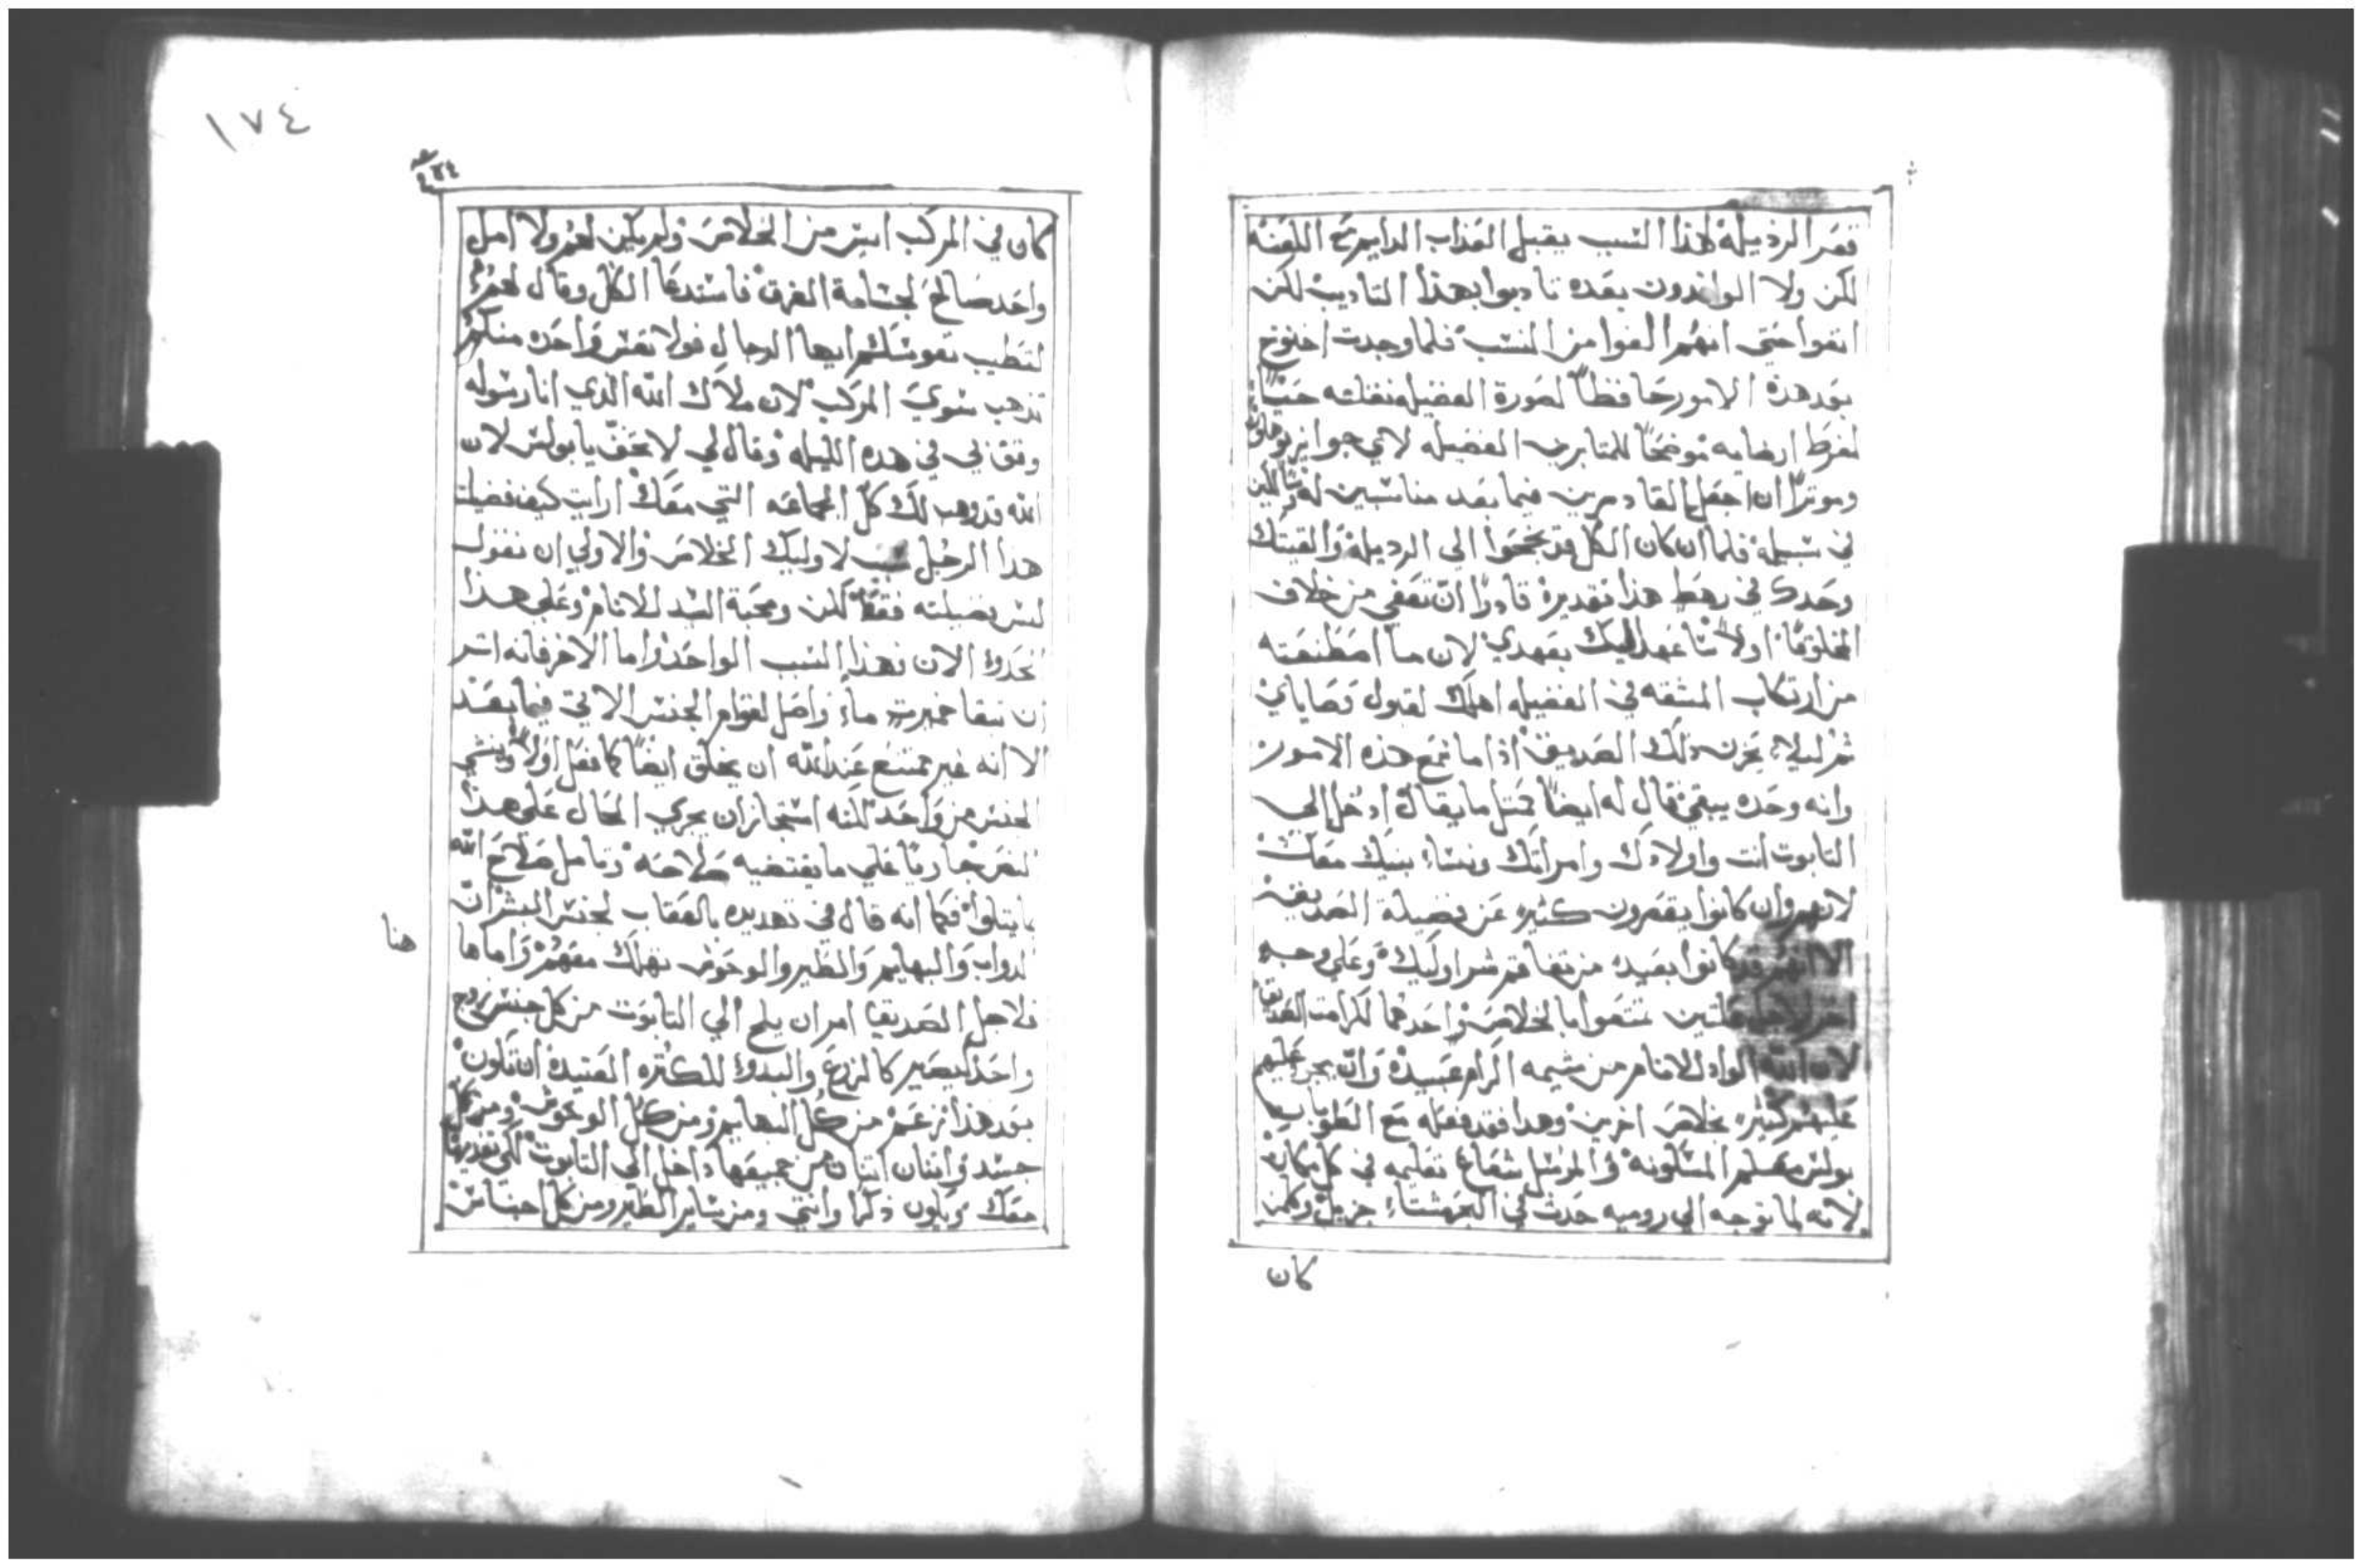 قصر الرذيله لهذا السبب يقبل العذاب الدايم مع اللعنه
لكن ولا الوافدون بعده تادبوا بهذا التاديب لكن
اتفوا حتى انهم الفوا من النسب فلما وجدت اخنوخ
بعد هذه الامور حافظاً لصورة الفضيله نقلته حيًا
لفرط ارضايه موضحاً للمتابرين الفضيله لاي جوايز يوهلون
وموثراً ان اجعل القادمرين فيما بعد مناسبين له
في سبيله فلما ان كان الكل قد جمحوا الي الرديله والقيتك
وحدك في رهط هذا تقديره قادراً ان تعفي من خلاف
المخلوقا اولاً عهد اليك بعهدي لان ما اصطنعته
من ارتكاب المشقه في الفضيله اهلك لقبول وصاياي
ثم ليلا يحزن دلك الصديق اذا ما سمع هذه الامور
وانه وحده يبقي قال له ايضاً مثل ما يقال ادخل الي
التابوت انت واولادك وامراتك ونساء بنيك معك
لانهم وان كانوا يقصرون كثيره عن فضيلة الصديق
الا انهم قد كانوا بعيده من تفاقم شر اوليك وعلي وجه
اخر لاجل علتين تمتعوا بالخلاص واحدهما لكرامت الصديق
لان الله الواد الانام من شيمه اكرام عبيده وان يجن عليهم
عليهم كثيره بخلاص اخرين وهدا فقد فعله مع الطوباب
بولس معلم المسكونه والمرسل شعاع تعليمه في كل مكان
لانه لما توجه الي روميه حدث في البحر شتاء جزيل وكمن
كان
١٧٤
كان في المركب ايس من الخلاص ولم يكن لهم ولا امل
واحد صالح لجسامة الغرق فاستدعا الكل وقال لهم
لتطيب نفوسكم ايها الرجال فولا نفس واحده منكم
تذهب سوي المركب لان ملاك الله الذي انا رسوله
وقف بي في هده الليله وقال لي لا تخف يا بولس لان
الله قد وهب لك كل الجماعه التي معك ارايت كيف فضيلت
هدا الرجل سبب لاوليك الخلاص والاولي ان نقول
ليس فضيلته فقط لكن ومحبة السيد للانام وعلي هدا
الحدو الان فهذا السبب الواحد واما الاخر فانه اثر
ان تبقا خميرت ما واصل لقوام الجنس الاتي فيما بعد
الا انه غير ممتنع عند الله ان يخلق ايضاً كما فعل اولاً وينشي
الجنس من واحد لكنه استجاز ان يجري الحال علي هذا
النص جاريا علي ما يقتضيه صلاحه وتامل صلاح الله
ما يتلوا فكما انه قال في تهديده بالعقاب لجنس البشر ان
الدواب والبهايم والطير والوحوش تهلك معهم واما ها
هنا
فلاجل الصديقا امر ان يلج الي التابوت من كل جنس زوج
واحد ليصير كالزرع والبدو للكثره العتيده ان تكون
بعد هذا زعم من كل البهايم ومن كل الوحوش ومن كل
جسد واثنان اثنان من جميعها داخل الي التابوت لكي تغديها
معك ويكون ذكرا وانتي ومن ساير الطير ومن كل اجناس